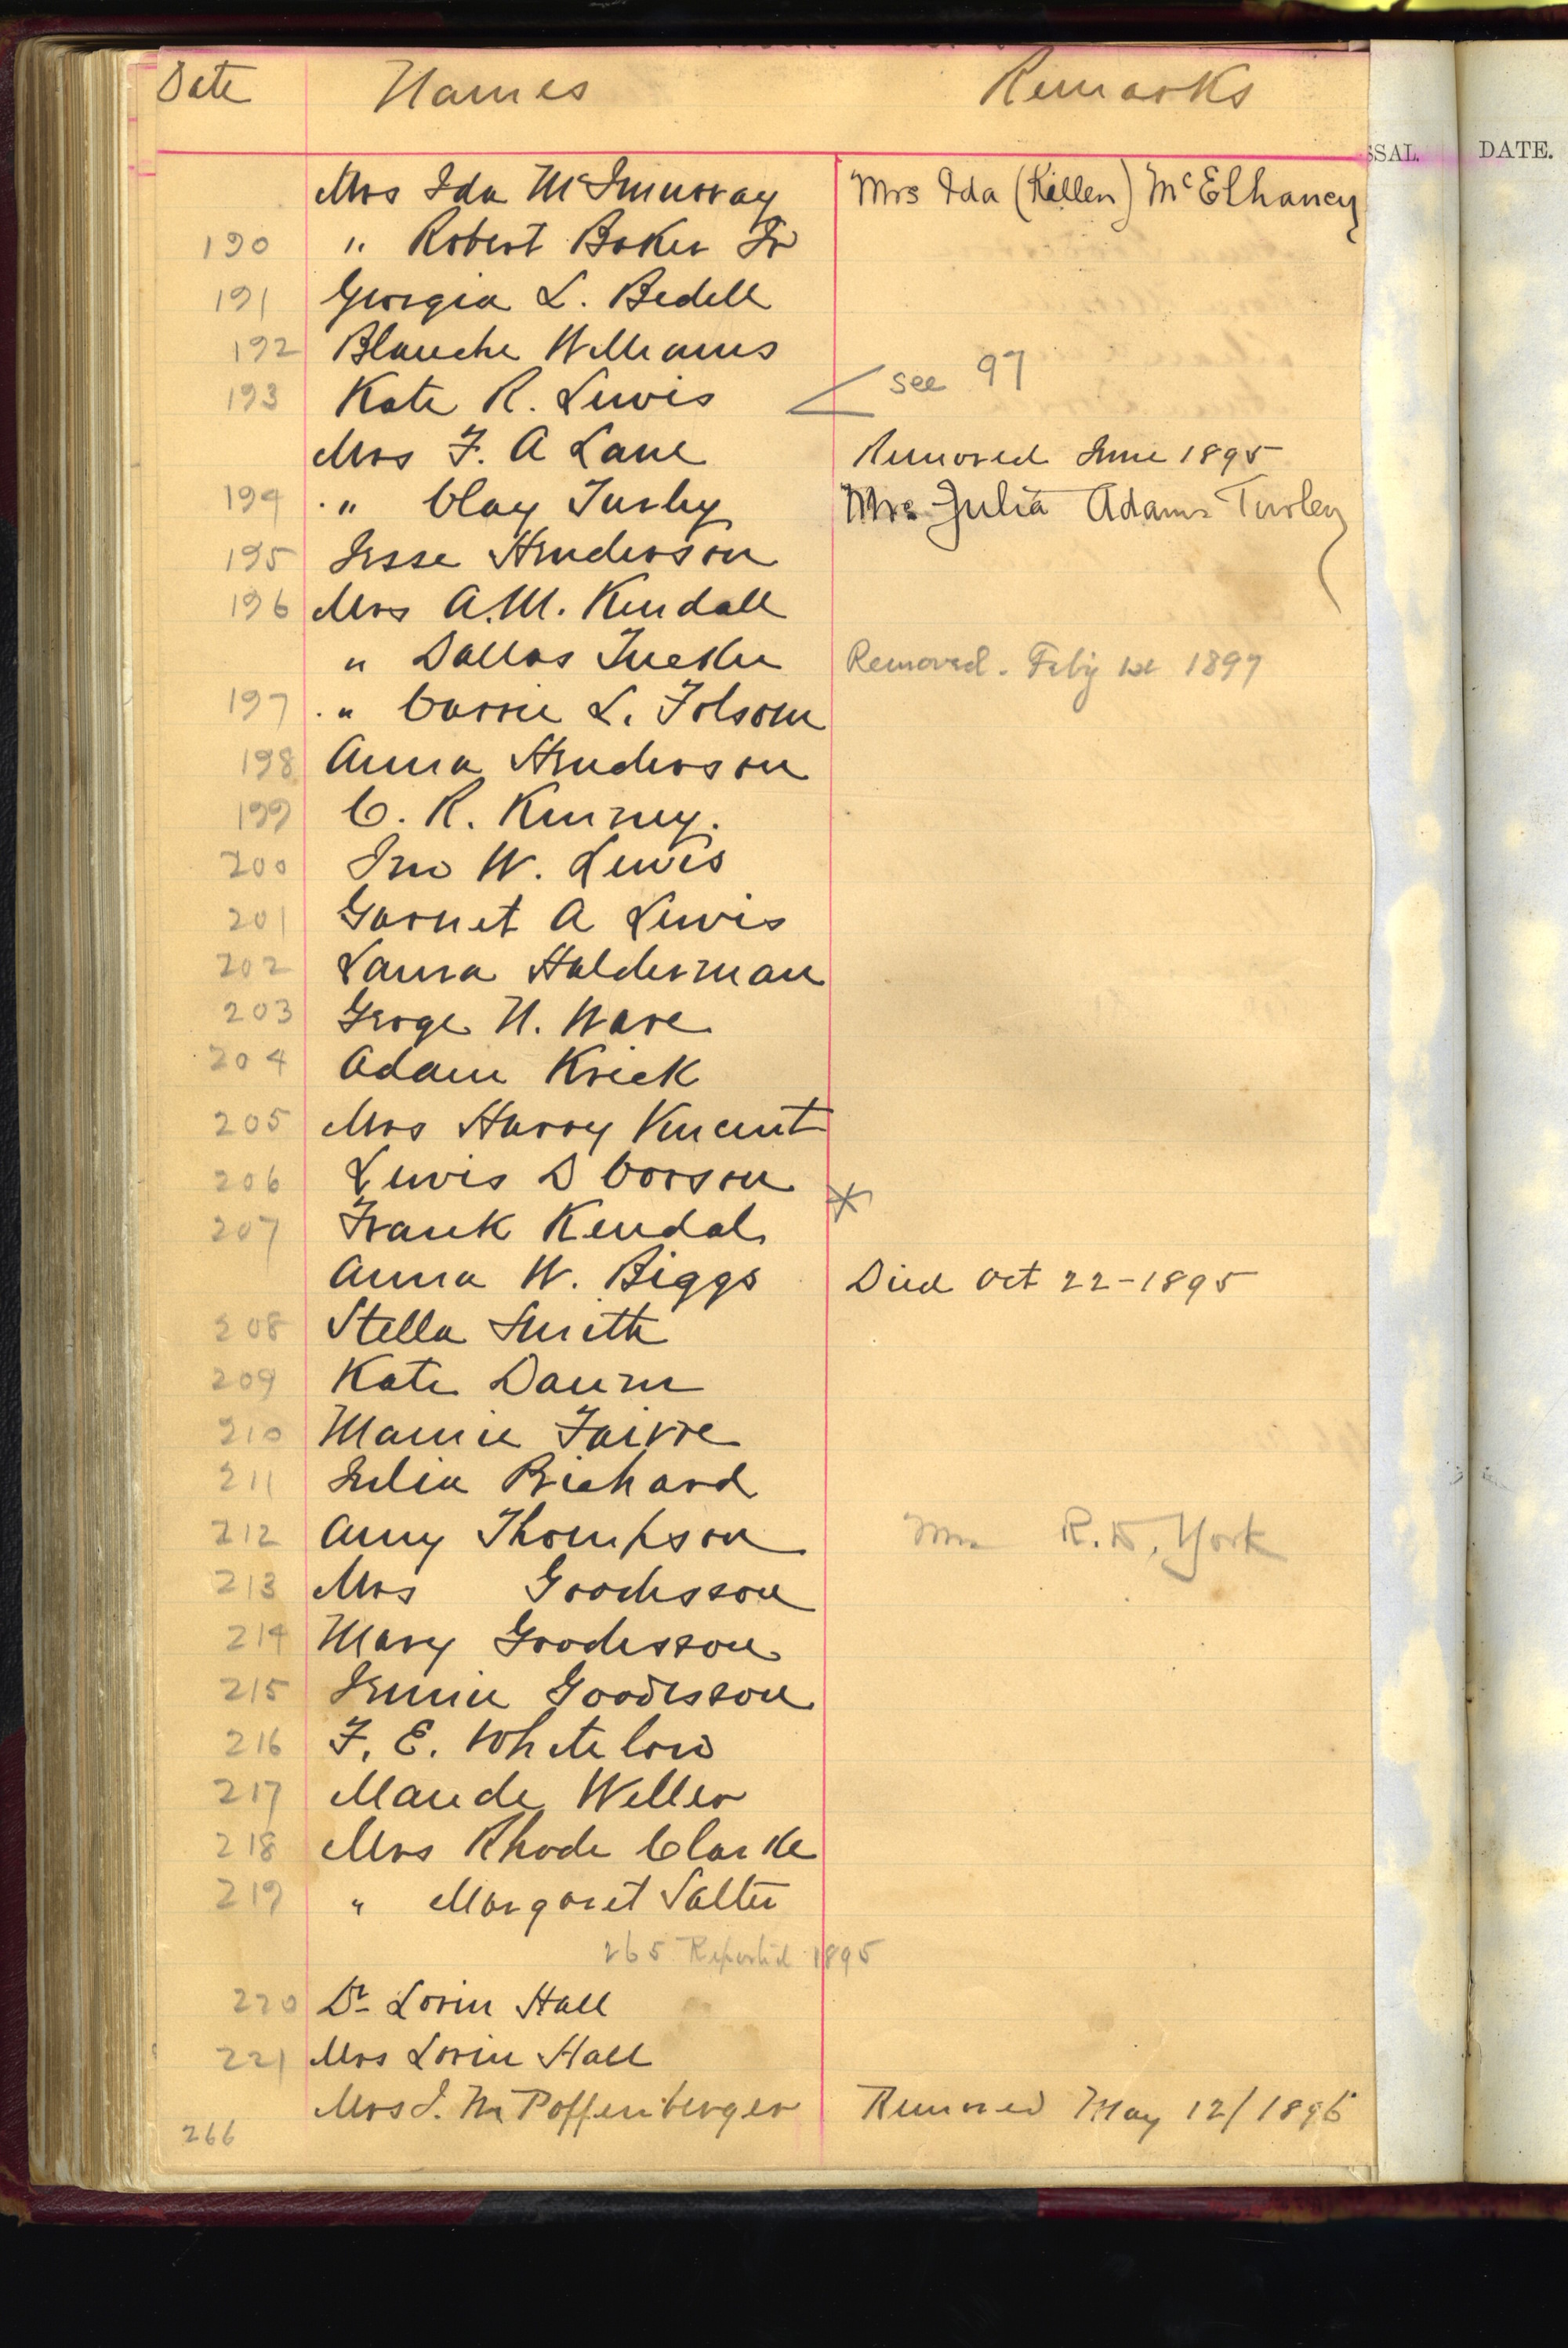 Date Names Remarks
SSAL. DATE.
Mrs Ida Mc Mrs Ida (Killen) McElhaney
190 " Robert Baker Jr
191 Georgia L. Bedell
192 Blanche Williams
193 Kate R. Lewis see 97
Mrs F. A Lane Removed June 1895
194 " Clay Turley Mrs Julia Adams Turley
195 Jesse Henderson
196 Mrs A.M. Kendall
" Dallas Tucker Removed. Feby 1st 1897
197 " Carrie L. Folsom
198 Anna Henderson
199 C. R. Kinney.
200 Jno W. Lewis
201 Garnet A Lewis
202 Laura Halderman
203 George N. Ware
204 Adam Krick
205 Mrs Harry Vincent
206 Lewis D Corson
207 Frank Kendal
Anna W. Biggs Died Oct 22-1895
208 Stella Smith
209 Kate Daum
210 Mamie Faivre
211 Julia Richard
212 Amy Thompson Mrs R.D. York
213 Mrs Goodesson
214 Mary Goodesson
215 Jennie Goodesson
216 F. E. Whitelow
217 Maude Weller
218 Mrs Rhode Clarke
219 " Margaret Salter
265 Reported 1895
220 Dr Lorin Hall
221 Mrs Lorin Hall
Mrs J. M Poffenberger Removed May 12/1896
266